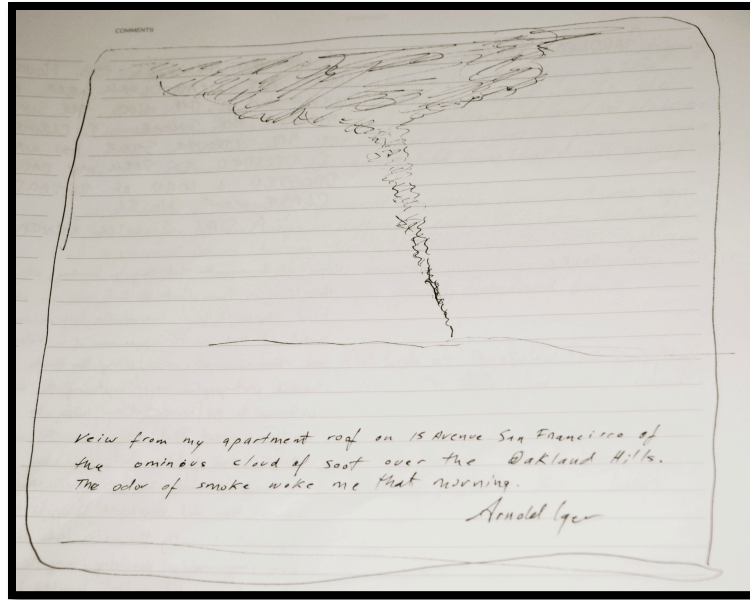 COMMENTS
Veiw from my apartment roof on 15 Avenue San Francisco of
the ominous cloud of soot over the Oakland Hills.
The odor of smoke woke me that morning.
Arnold